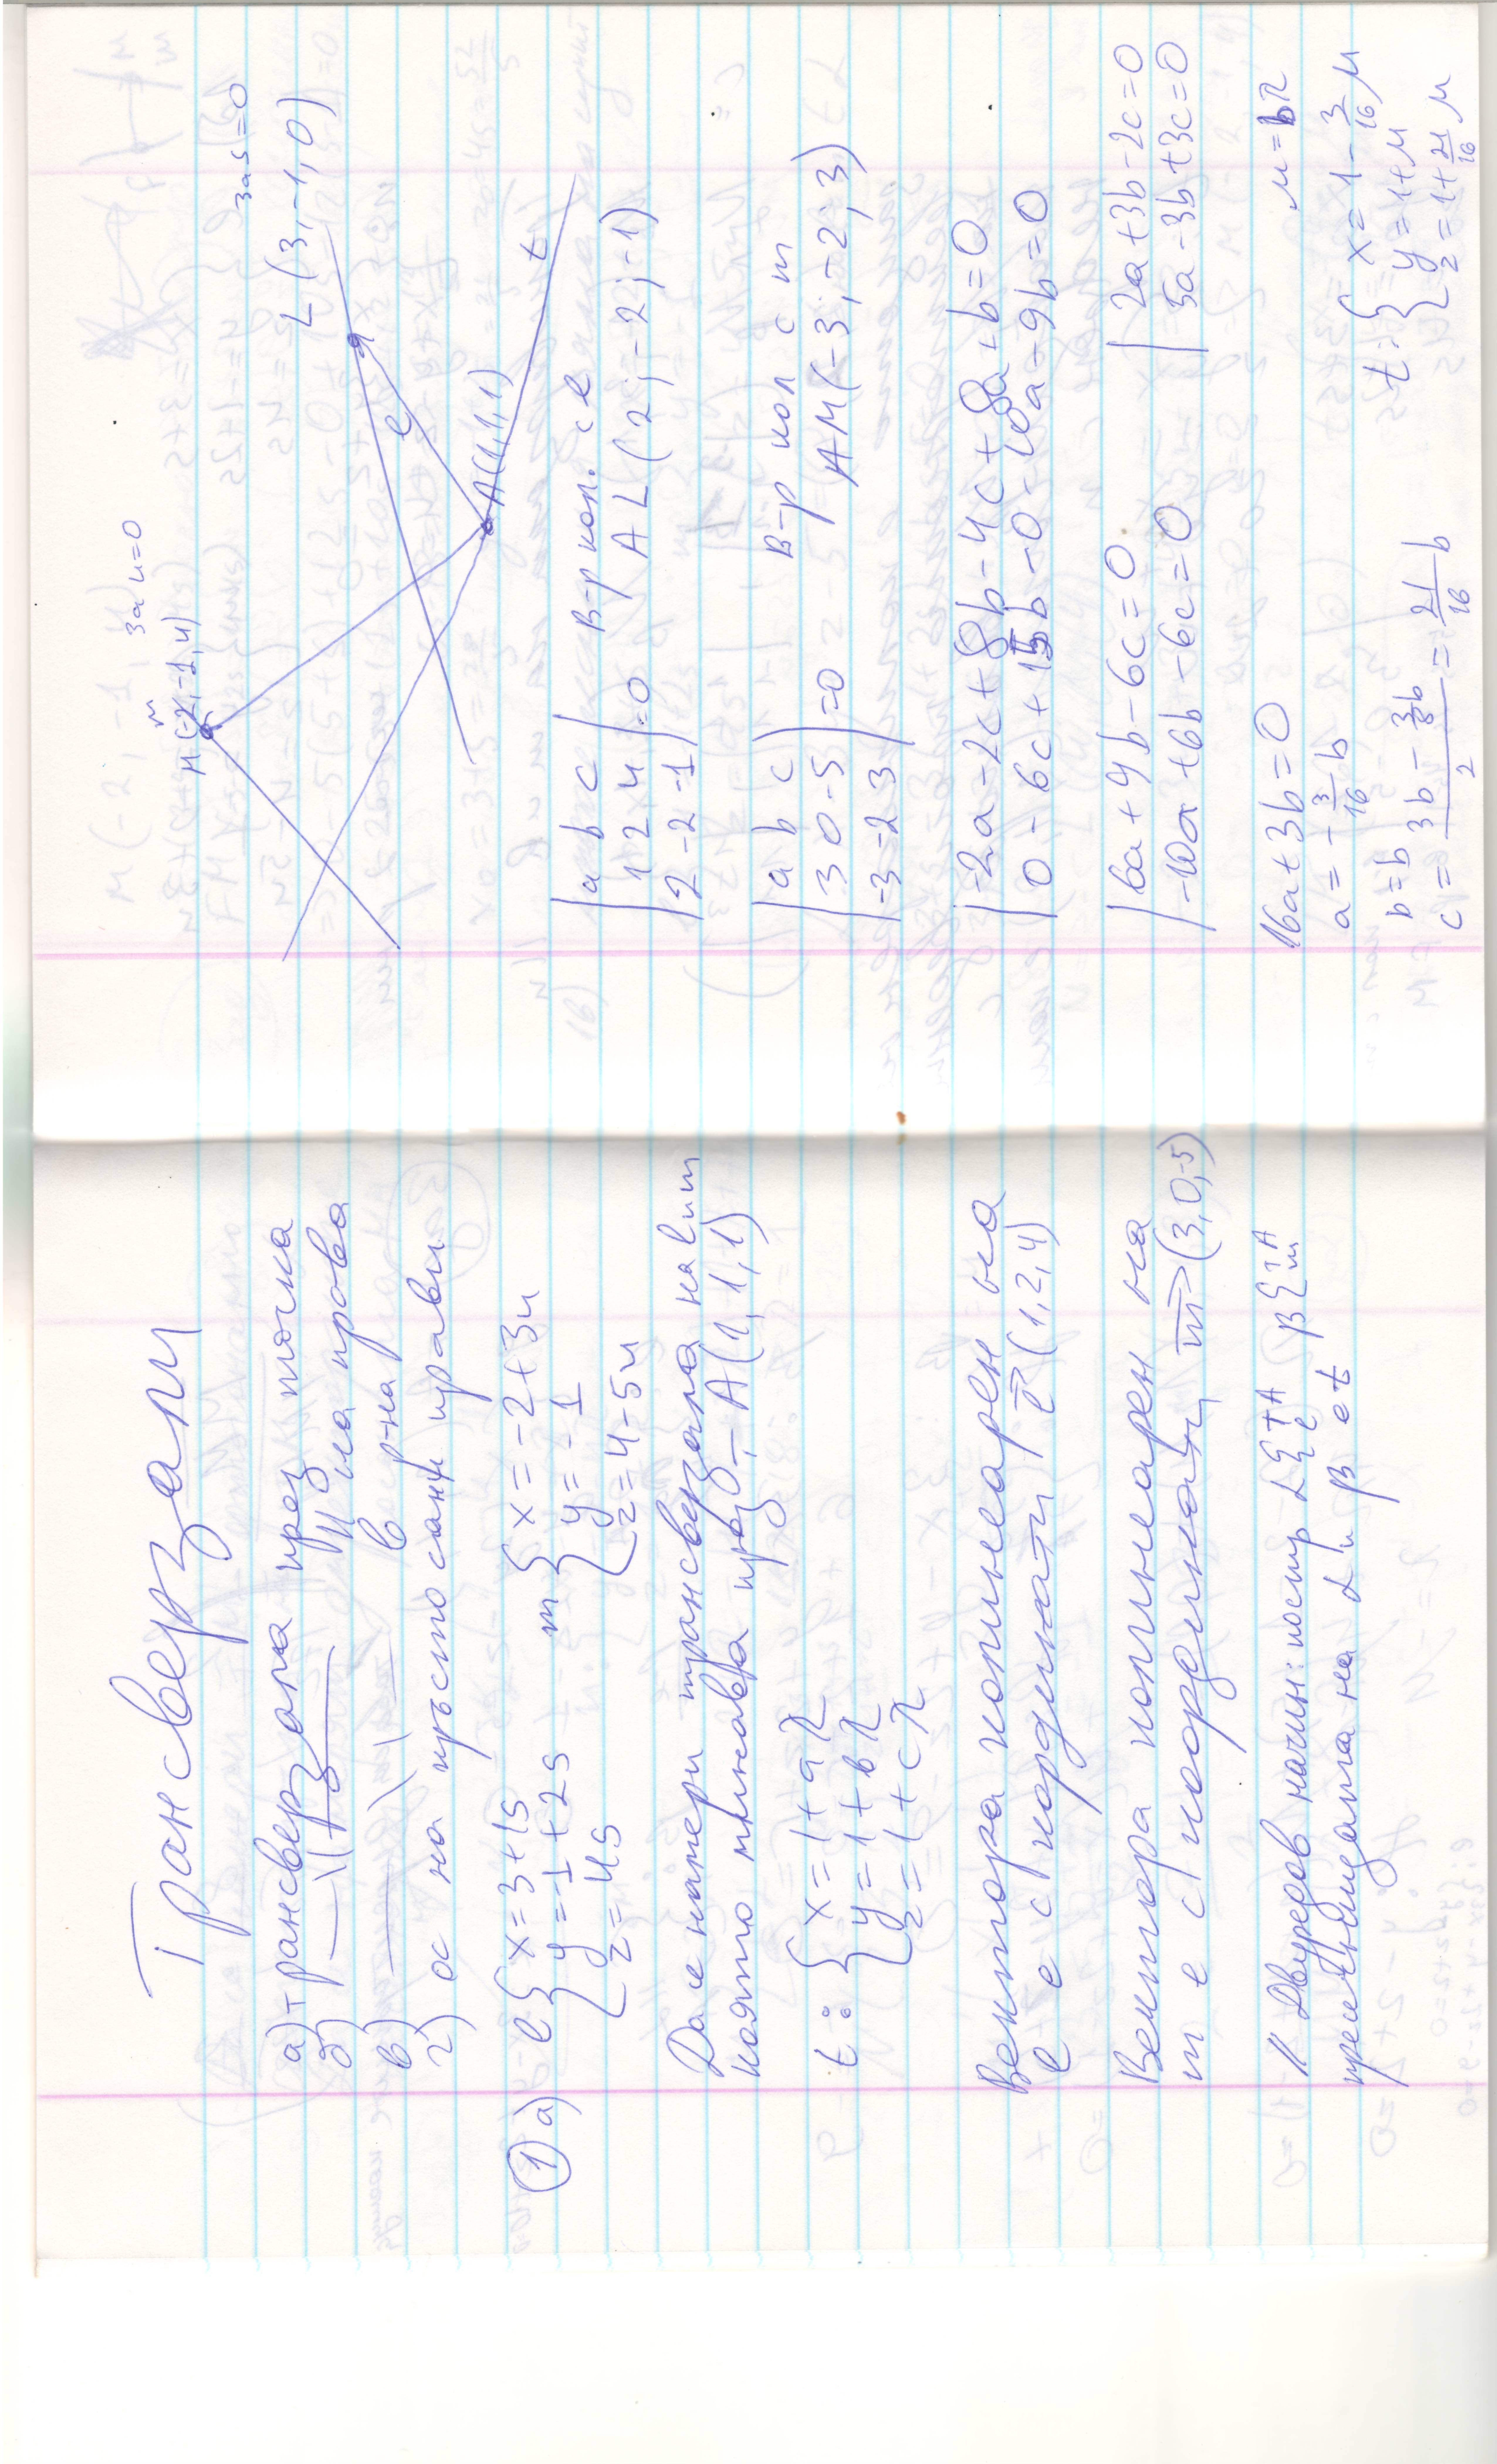 Трансверзали
а) трансверзала през точка
б) —||— ||ла на права
в) —||— в р-на
г) ос на кръстосани прави
① а) l { x=3+1s m { x=-2+3u
y=-1+2s y=-1
z=4s z=4-5u
Да се намери трансверзала на l и m
която минава през т A(1,1,1)
t: { x=1+aλ
y=1+bλ
z=1+cλ
Вектора колинеарен на
l е с координати l(1,2,4)
Вектора колинеарен на
m е с координати m(3,0,-5)
II Двуредов начин: постр α{т A l β{т A m
пресечницата на α и β е t
M(-2,-1,4) за u=0
за s=0
L(3,-1,0)
m
l
A(1,1,1)
t
|a b c
1 2 4
2 -2 -1|=0
В-р кол. с l
AL(2;-2;-1)
|a b c
3 0 -5
-3 -2 3|=0
В-р кол с m
AM(-3,-2;3)
|-2a-2c+8b-4c+8a+b=0
0-6c+15b-0-10a-9b=0
|6a+4b-6c=0
-10a+6b-6c=0
|2a+3b-2c=0
5a-3b+3c=0
16a+3b=0
a=-3/16 b
b=b
c=(3b-3/8b)/2=21/16 b
μ=bλ
t:{ x=1-3/16 μ
y=1+μ
z=1+21/16 μ